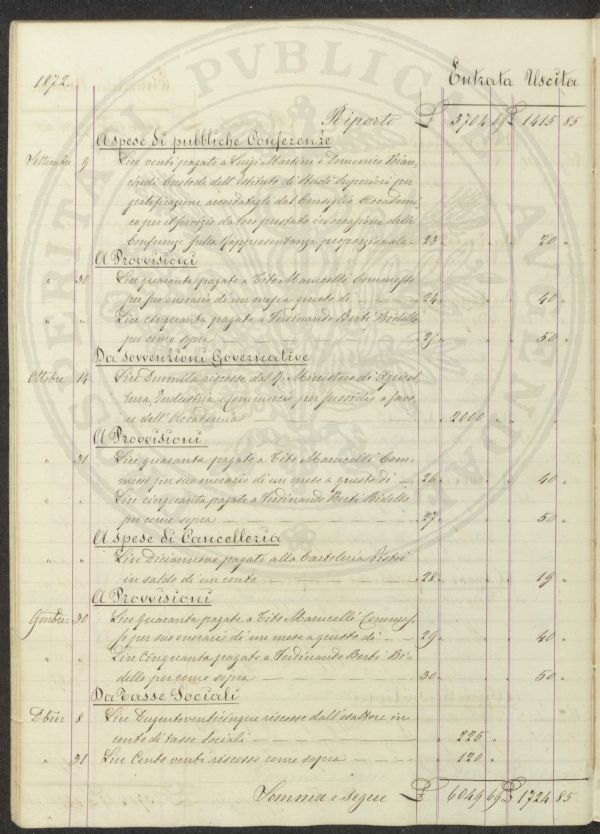 1872.
Entrata Uscita
Riporto £ 3704 69 £ 1415 85
A spese di pubbliche Conferenze
Settembre 9 Lire venti pagate a Luigi Martini e Domenico Bian-
chedi Custodi dell'Istituto di Studi Superiori per
gratificazione accordatagli dal Consiglio Accademi
co per il servizio da loro prestato in occasione delle
Conferenze sulla rappresentanza proporzionale - 23 „ „ „ 20 „
A Provvisioni
„ 30 Lire quaranta pagate a Tito Marucelli Commesso
per suo onorario di un mese a questo dì — 24 „ „ „ 40 „
„ „ Lire cinquanta pagate a Ferdinando Berti Bidello
per come sopra — 25 „ „ „ 50 „
Da Sovvenzioni Governative
Ottobre 14 Lire Duemila riscosse dal R. Ministero di Agricol
tura, Industria e Commercio per sussidio a favo
re dell'Accademia — „ 2000 „ „ „
A Provvisioni
„ 31 Lire quaranta pagate a Tito Marucelli Com-
messo per suo onorario di un mese a questo dì — 26 „ „ „ 40 „
„ „ Lire cinquanta pagate a Ferdinando Berti Bidello
per come sopra — 27 „ „ „ 50 „
A spese di Cancelleria
„ „ Lire Diciannove pagate alla Cartoleria
in saldo di un conto — 28 „ „ „ 19 „
A Provvisioni
9mbre 30 Lire quaranta pagate a Tito Marucelli Commes-
so per suo onorario di un mese a questo dì — 29 „ „ „ 40 „
„ „ Lire Cinquanta pagate a Ferdinando Berti Bi-
dello per come sopra — 30 „ „ „ 50 „
Da Tasse Sociali
Dbre 8 Lire Dugentoventicinque riscosse dall'esattore in
conto di tasse sociali — „ 225 „
„ 31 Lire Cento venti riscosse come sopra — „ 120 „
Somma e segue £ 6049 69 £ 1724 85